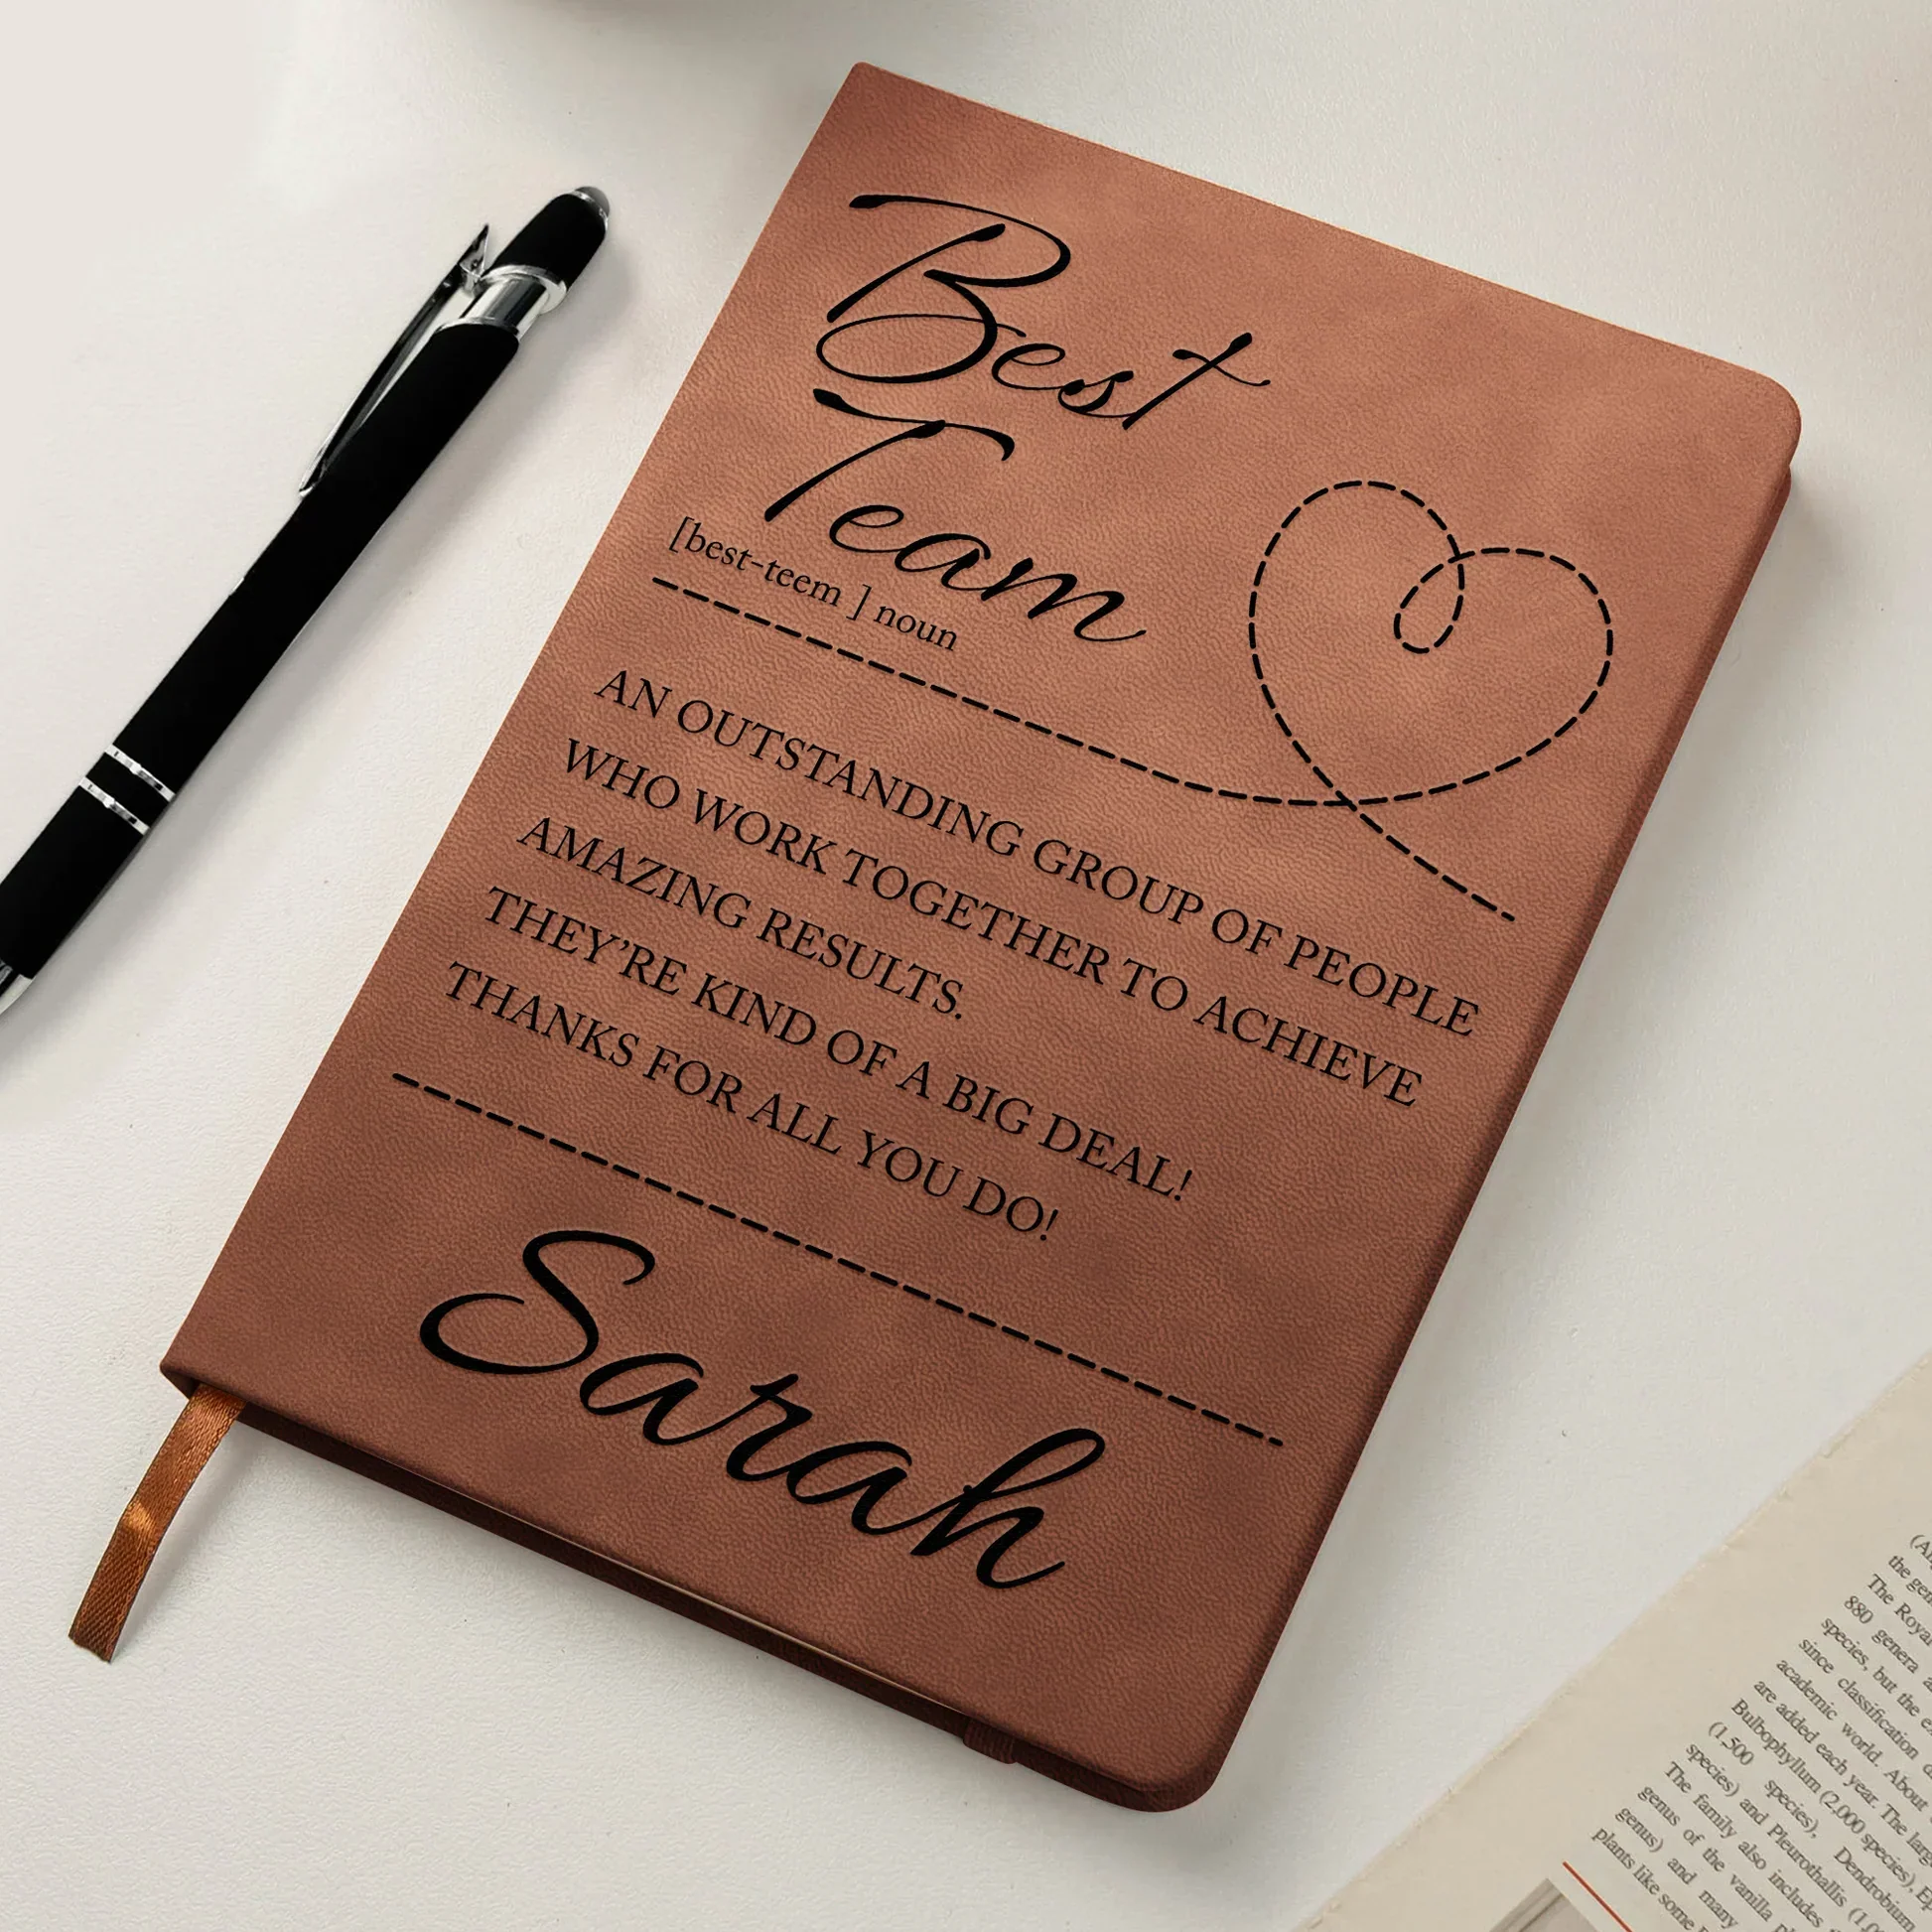 Best
Team
[best-teem ] noun
AN OUTSTANDING GROUP OF PEOPLE
WHO WORK TOGETHER TO ACHIEVE
AMAZING RESULTS.
THEY’RE KIND OF A BIG DEAL!
THANKS FOR ALL YOU DO!
Sarah
the gen
The Royal
880 genera
species, but the
since classification
academic world. About
are added each year. The
Bulbophyllum (2,000 species),
(1,500 species), Dendrobium
species) and Pleurothallis
The family also includes
genus of the vanilla
genus) and many
plants like some